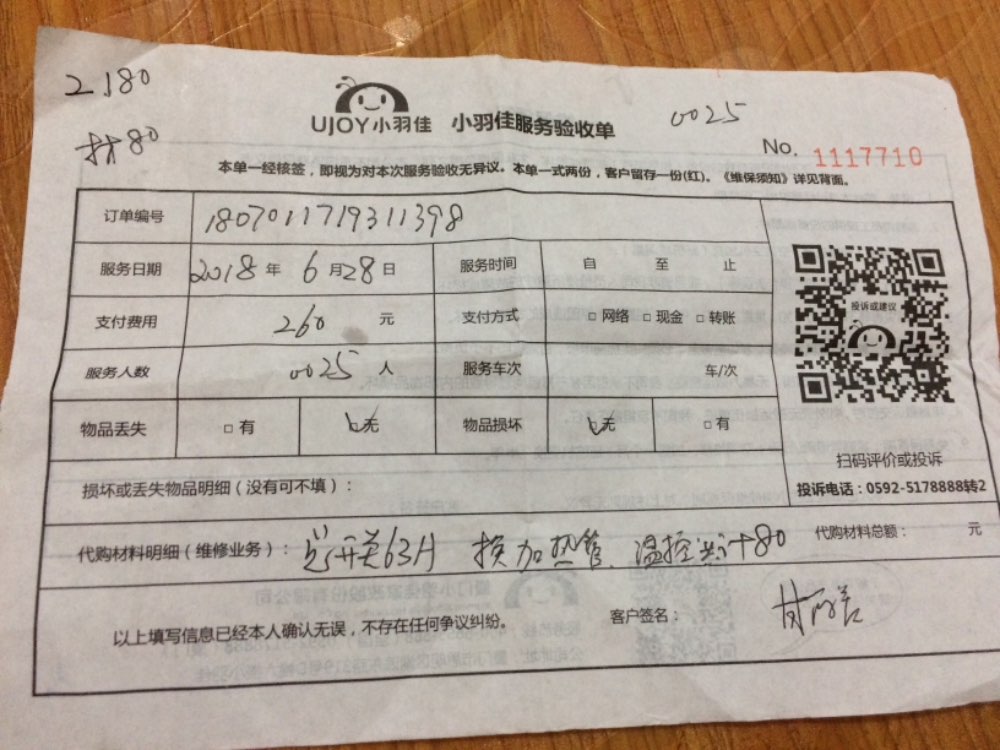 2180
材80
0025
UJOY小羽佳 小羽佳服务验收单
No. 1117710
本单一经核签，即视为对本次服务验收无异议。本单一式两份，客户留存一份(红)。《维保须知》详见背面。
订单编号 1807011719311398
服务日期 2018年 6月28日 服务时间 自 至 止
支付费用 260 元 支付方式 □网络 □现金 □转账
投诉或建议
服务人数 0025 人 服务车次 车/次
物品丢失 □有 ☑无 物品损坏 ☑无 □有
扫码评价或投诉
投诉电话：0592-5178888转2
损坏或丢失物品明细（没有可不填）：
代购材料明细（维修业务）：总开关63A 换加热管、温控 计80 代购材料总额： 元
以上填写信息已经本人确认无误，不存在任何争议纠纷。 客户签名：